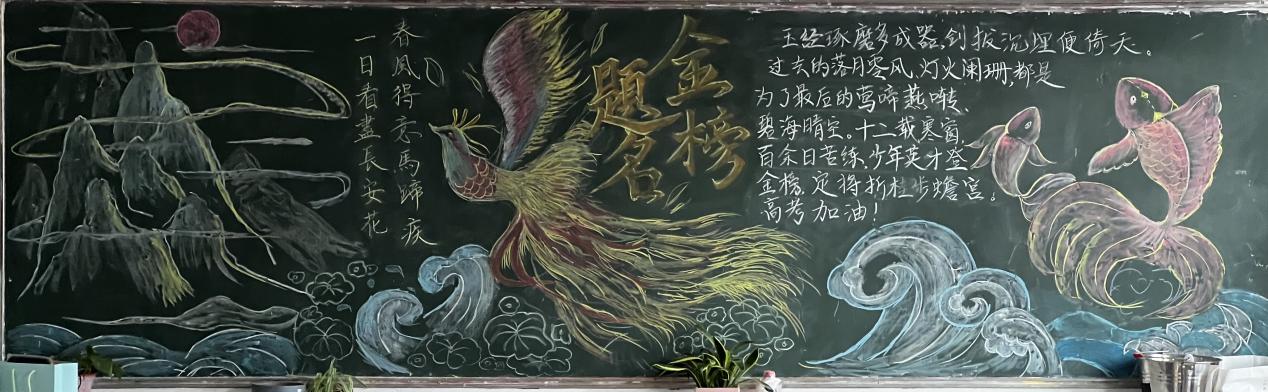 春風得意馬蹄疾
一日看盡長安花
金榜
题名
玉经琢磨多成器,剑拔沉埋便倚天。
过去的落月寒风,灯火阑珊,都是
为了最后的莺啼燕啭、
碧海晴空。十二载寒窗,
百余日苦练,少年英才登
金榜,定将折桂步蟾宫。
高考加油!